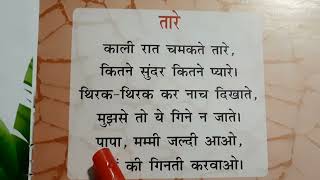 तारे
काली रात चमकते तारे,
कितने सुंदर कितने प्यारे।
थिरक-थिरक कर नाच दिखाते,
मुझसे तो ये गिने न जाते।
पापा, मम्मी जल्दी आओ,
की गिनती करवाओ।